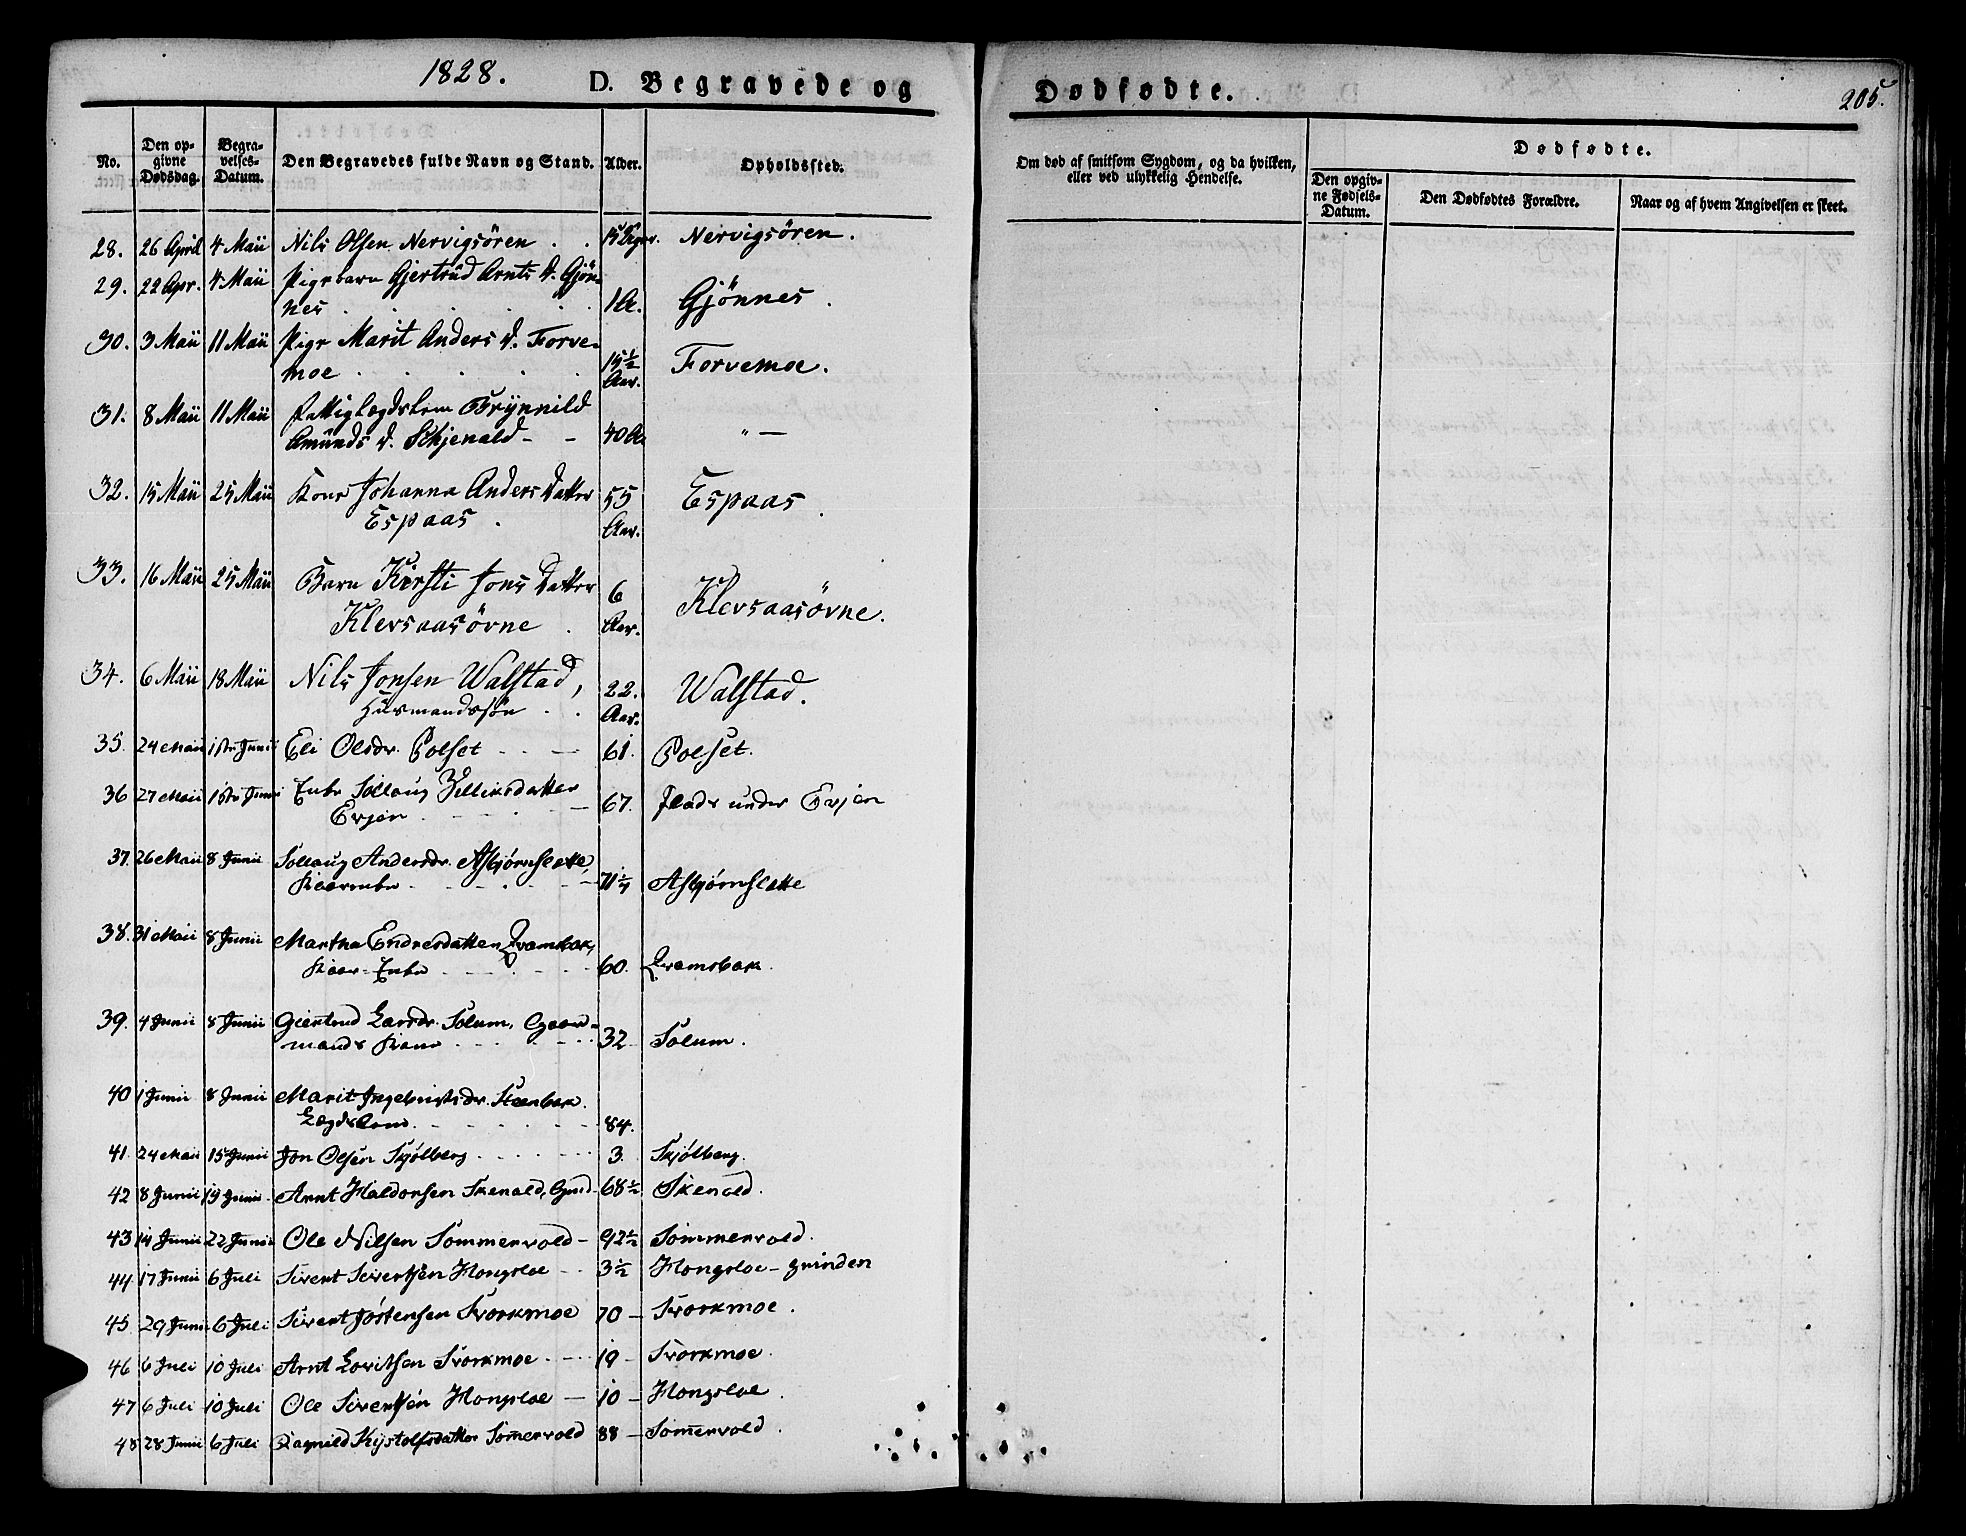 1828.
D. Begravede og
Dødfødte.
205.
No.
Den op-
givne
Dødsdag.
Begra-
velses-
Datum.
Den Begravedes fulde Navn og Stand.
Alder.
Opholdssted.
Om død af smitsom Sygdom, og da hvilken,
eller ved ulykkelig Hendelse.
Dødfødte.
Den opgiv-
ne Fødsels-
Datum.
Den Dødfødtes Forældre.
Naar og af hvem Angivelsen er skeet.
28. 26 April 4 Maii Nils Olsen Nervigsören . . Nervigsören.
29. 22 Apr. 4 Maii Pigebarn Gjertrud Arnts D. Gjön-
nes . . . . . 1 A. Gjönnes.
30. 3 Maii 11 Maii Pige Marit Anders D. Forve-
moe . . . . . 15 1/2 Aar. Forvemoe.
31. 8 Maii 11 Maii Fattiglægdslem Brynnild
Amunds D. Schjenald - - 40 Aa " —
32. 15 Maii 25 Maii Kone Johanna Anders Datter 55
Espaas . Aar. Espaas.
33. 16 Maii 25 Maii Barn Kirsti Jons Datter 6
Klevsaasörne . Aar. Klevsaasörne.
34. 6 Maii 18 Maii Nils Jonsen Walstad, 22.
Huusmandssön . . Aar. Walstad.
35. 24 Maii 1ste Junii Eli Olsdr. Polset - - - 61. Polset.
36 27 Maii 1ste Junii Enke Sollaug
Evjen . - - - . - 67. Plads under Evjen
37. 26 Maii 8 Junii Sollaug Andersdr. Asbjørnslette,
71 Asbjørnslette
38. 31 Maii 8 Junii Martha Endresdatter Qvamsbak,
Enke - - - . - - - 60. Qvamsbak.
39. 4 Junii 8 Junii Giertrud Larsdr. Solum, Gaard-
mands Kone - - - . - - - 32 - Solum.
40 1 Junii 8 Junii Marit Ingebrigtsdr. Steenbak.
Lægdslem. - - - - - - - 84.
41. 24 Maii 15 Junii Jon Olsen Skjölberg - - - - - - 3. Skjölberg.
42 8 Junii 19 Junii Arnt Haldorsen Skenald, 68 1/2 Skenald.
43 14 Junii 22 Junii Ole Nilsen Sommervold - 92 1/2 Sommervold.
44 17 Junii 6 Juli Sivert Sivertsen Hongsloe - - 3 1/2 Hongsloe - grinden
45 29 Junii 6 Juli Sivert Jostensen Svorkmoe 70 - Svorkmoe.
46 6 Juli 10 Juli Arnt Svorkmoe - - - 19 - Svorkmoe.
47 6 Juli 10 Juli Ole Sivertsen Hongsloe — 10 - Hongsloe.
48 28 Junii 6 Juli Ragnild Somervold 88 - Somervold.